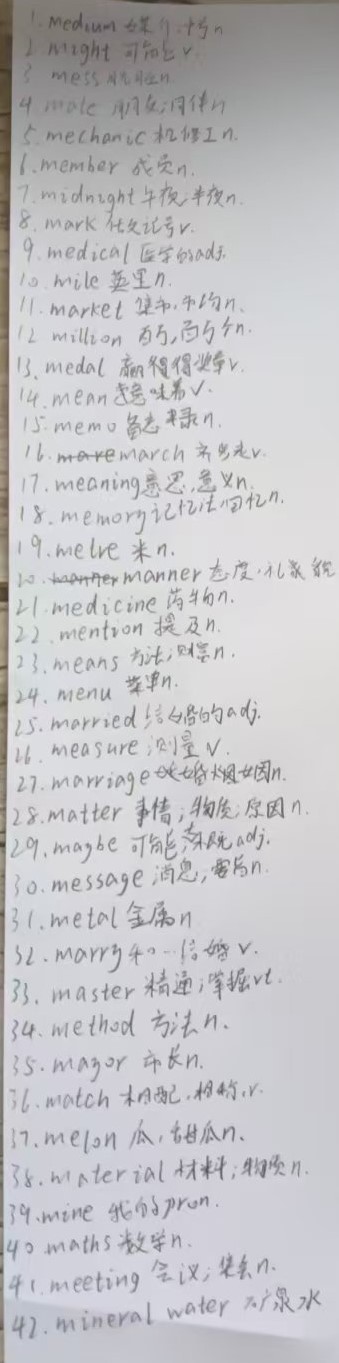 1. medium 媒介 n
2. might 可能 v.
3. mess n
4. mate 朋友;同伴 n
5. mechanic 机修工n.
6. member 成员n.
7. midnight 午夜;半夜n.
8. mark 做记号v.
9. medical 医学的adj.
10. mile 英里n.
11. market 集市,市场n.
12 million 百万,百万个n.
13. medal 赢得得奖章v.
14. mean 意味着v.
15. memo 备忘录n.
16. march 齐步走v.
17. meaning意思,意义n.
18. memory记忆法;回忆n.
19. metre 米n.
20. manner态度,礼貌
21. medicine 药物n.
22. mention 提及n.
23. means 方法;n.
24. menu 菜单n.
25. married 结婚的adj.
26. measure 测量v.
27. marriage 婚姻n.
28. matter 事情;物质;原因n.
29. maybe 可能 adj.
30. message 消息;n.
31. metal 金属n
32. marry 和…结婚v.
33. master 精通;掌握vt.
34. method 方法n.
35. mayor 市长n.
36. match 相配,相称.v.
37. melon 瓜,甜瓜n.
38. material 材料;物质n.
39. mine 我的pron.
40 maths 数学n.
41. meeting 会议;集会n.
42. mineral water 矿泉水